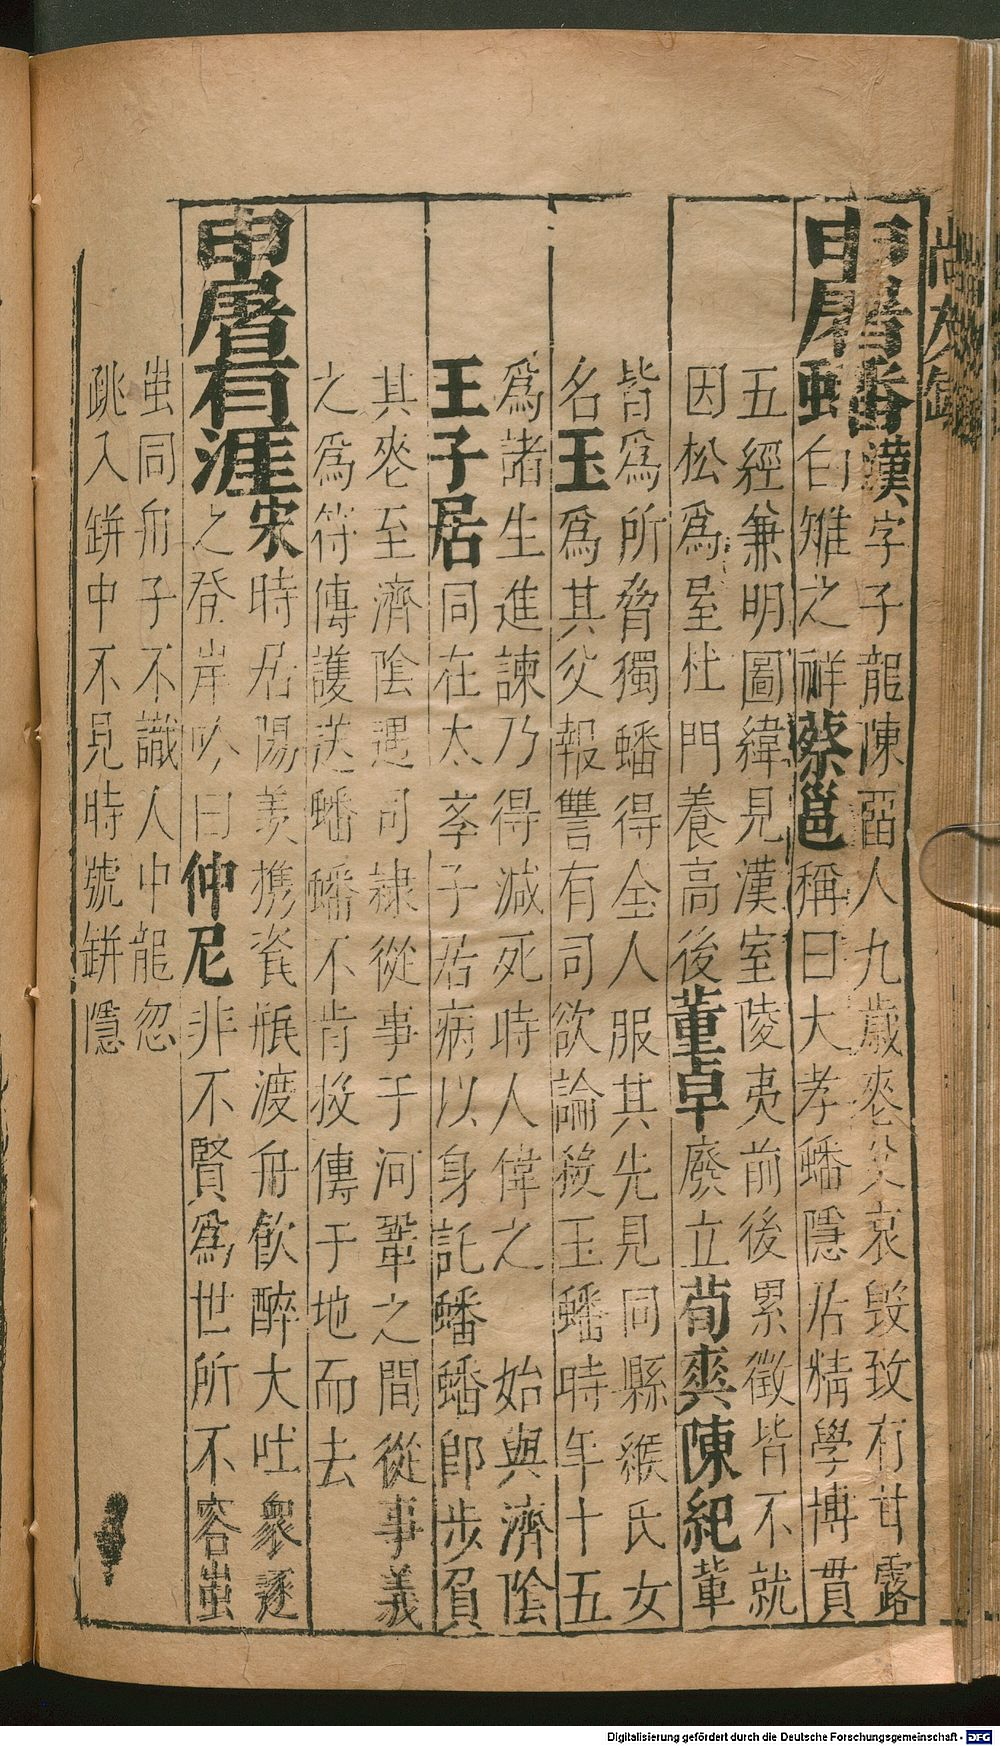 申屠蟠漢字子龍陳畱人九歲喪父哀毀致有甘露
白雉之祥蔡邕稱曰大孝蟠隱居精學博貫
五經兼明圖緯見漢室陵夷前後累徵皆不就
因松爲屋杜門養高後董卓廢立荀爽陳紀輩
皆爲所脅獨蟠得全人服其先見同縣緱氏女
名玉爲其父報讐有司欲論殺玉蟠時年十五
爲諸生進諫乃得減死時人偉之 始與濟陰
王子居同在太學子居病以身託蟠蟠卽步負
其喪至濟陰遇司隸從事于河鞏之間從事義
之爲符傳護送蟠蟠不肯投傳于地而去
申屠有涯宋時居陽羨携瓷瓶渡舟飲醉大吐衆逐
之登岸吟曰仲尼非不賢爲世所不容蚩
蚩同舟子不識人中龍忽
跳入缾中不見時號缾隱
Digitalisierung gefördert durch die Deutsche Forschungsgemeinschaft - DFG